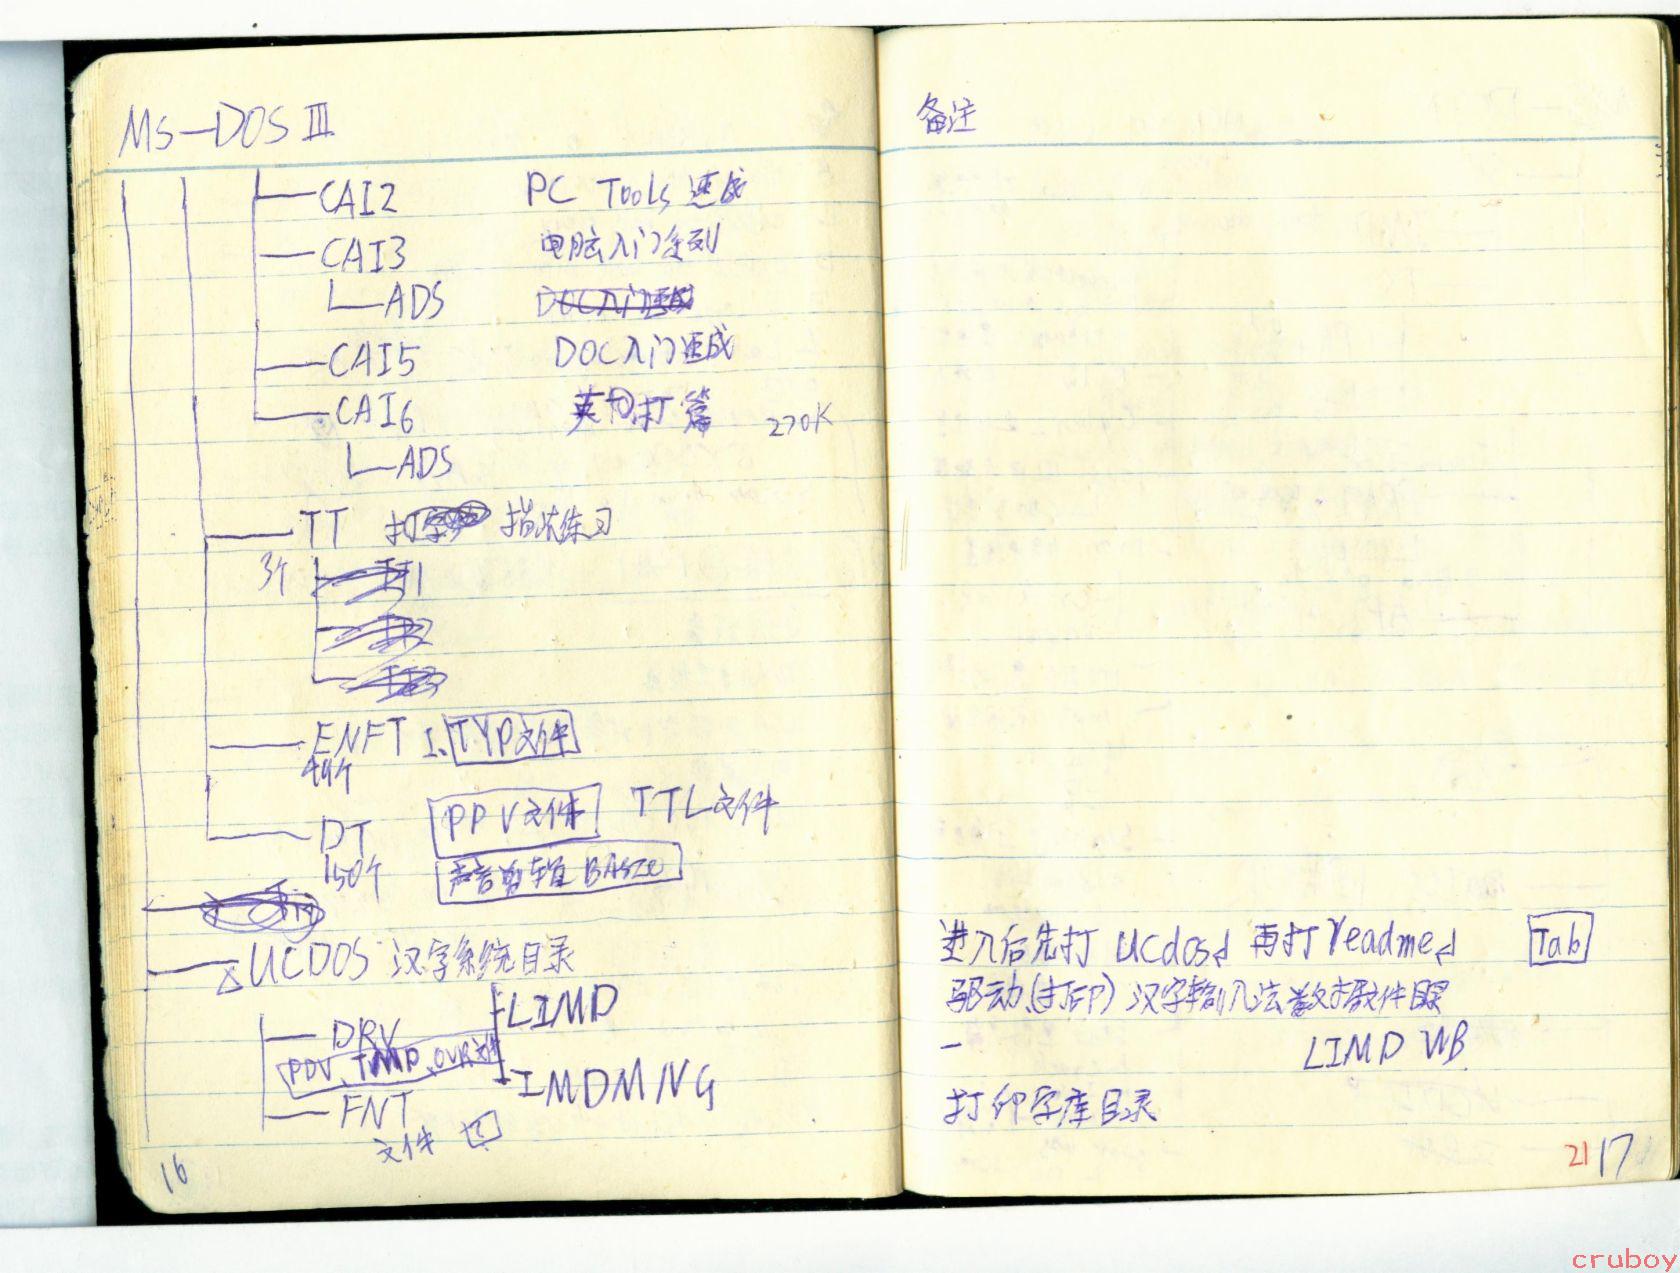 MS—DOS III
CAI2 PC Tools 速成
CAI3 电脑入门系列
ADS
CAI5 DOC入门速成
CAI6 打篇 270K
ADS
TT 打字 指法练习
3个
ENFT 1、TYP文件
49个
DT PPV文件 TTL文件
150个 声音剪辑
△UCDOS 汉字系统目录
LIMD
DRV
PDV、TMP、OVR文件
IMDMNG
FNT
文件
16
备注
进入后先打 UCdos↲ 再打 readme↲ Tab
驱动(打印) 汉字输入法数据软件
LIMD WB
打印字库目录
21 17
cruboy